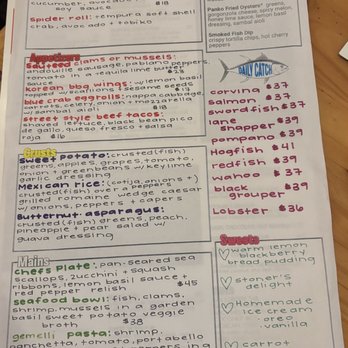 cucumber, avocado +
soy sauce $18
Spider roll: tempura soft shell
crab, avocado + tobiko
Panko Fried Oysters* greens,
gorgonzola cheese, spicy melon,
honey lime sauce, lemon basil
dressing, sambal aioli
Smoked Fish Dip
crispy tortilla chips, hot cherry
peppers
Appetizers
sauteed clams or mussels:
andouille sausage, pablano peppers,
tomato in a tequila lime butter
sauce $23
korean bbq wings: w/lemon basil
topped w/scallions + sesame seeds
$17
blue crab egg rolls: nappa cabbage,
carrots, celery, onion + mozzarella
w/ sambal aioli $18
street style beef tacos:
shaved lettuce, black bean pico
de gallo, queso fresco + salsa
roja $16
DAILY CATCH
corvina $37
salmon $37
swordfish $37
lane
snapper $39
pompano $39
Hogfish $41
redfish $39
wahoo $37
black
grouper $39
Lobster $36
Crusts
sweet potato: crusted (fish)
greens, apples, grapes, tomato,
onion + greenbeans w/ key lime
garlic dressing
Mexican rice: (cotija, onions +)
crusted (fish) or a peppers
grilled romaine wedge caesar
w/ onions, peppers + capers
Butternut asparagus:
crusted (fish) greens, peach,
pineapple + pear salad w/
guava dressing
Mains
chefs plate: pan-seared sea
scallops, zucchini + squash
ribbons, lemon basil sauce +
red pepper relish $45
seafood bowl: fish, clams,
shrimp, mussels in a garden
basil sweet potato veggie
broth $38
gemelli pasta: shrimp,
pancetta, tomato, portabello
Sweets
warm lemon
blackberry
bread pudding
stoner's
delight
Homemade
ice cream
oreo
vanilla
carrot